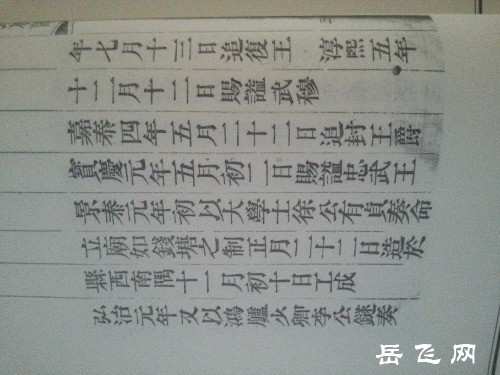 年七月十三日追復王 淳熙五年
十二月十二日賜謚武穆
嘉泰四年五月二十二日追封王爵
寶慶元年五月初二日賜謚忠武王
景泰元年初以大學士徐公有貞奏命
立廟如錢塘之制正月二十二日造於
縣西南隅十一月初十日工成
弘治元年又以鴻臚少卿李公鐩奏
岳飞网